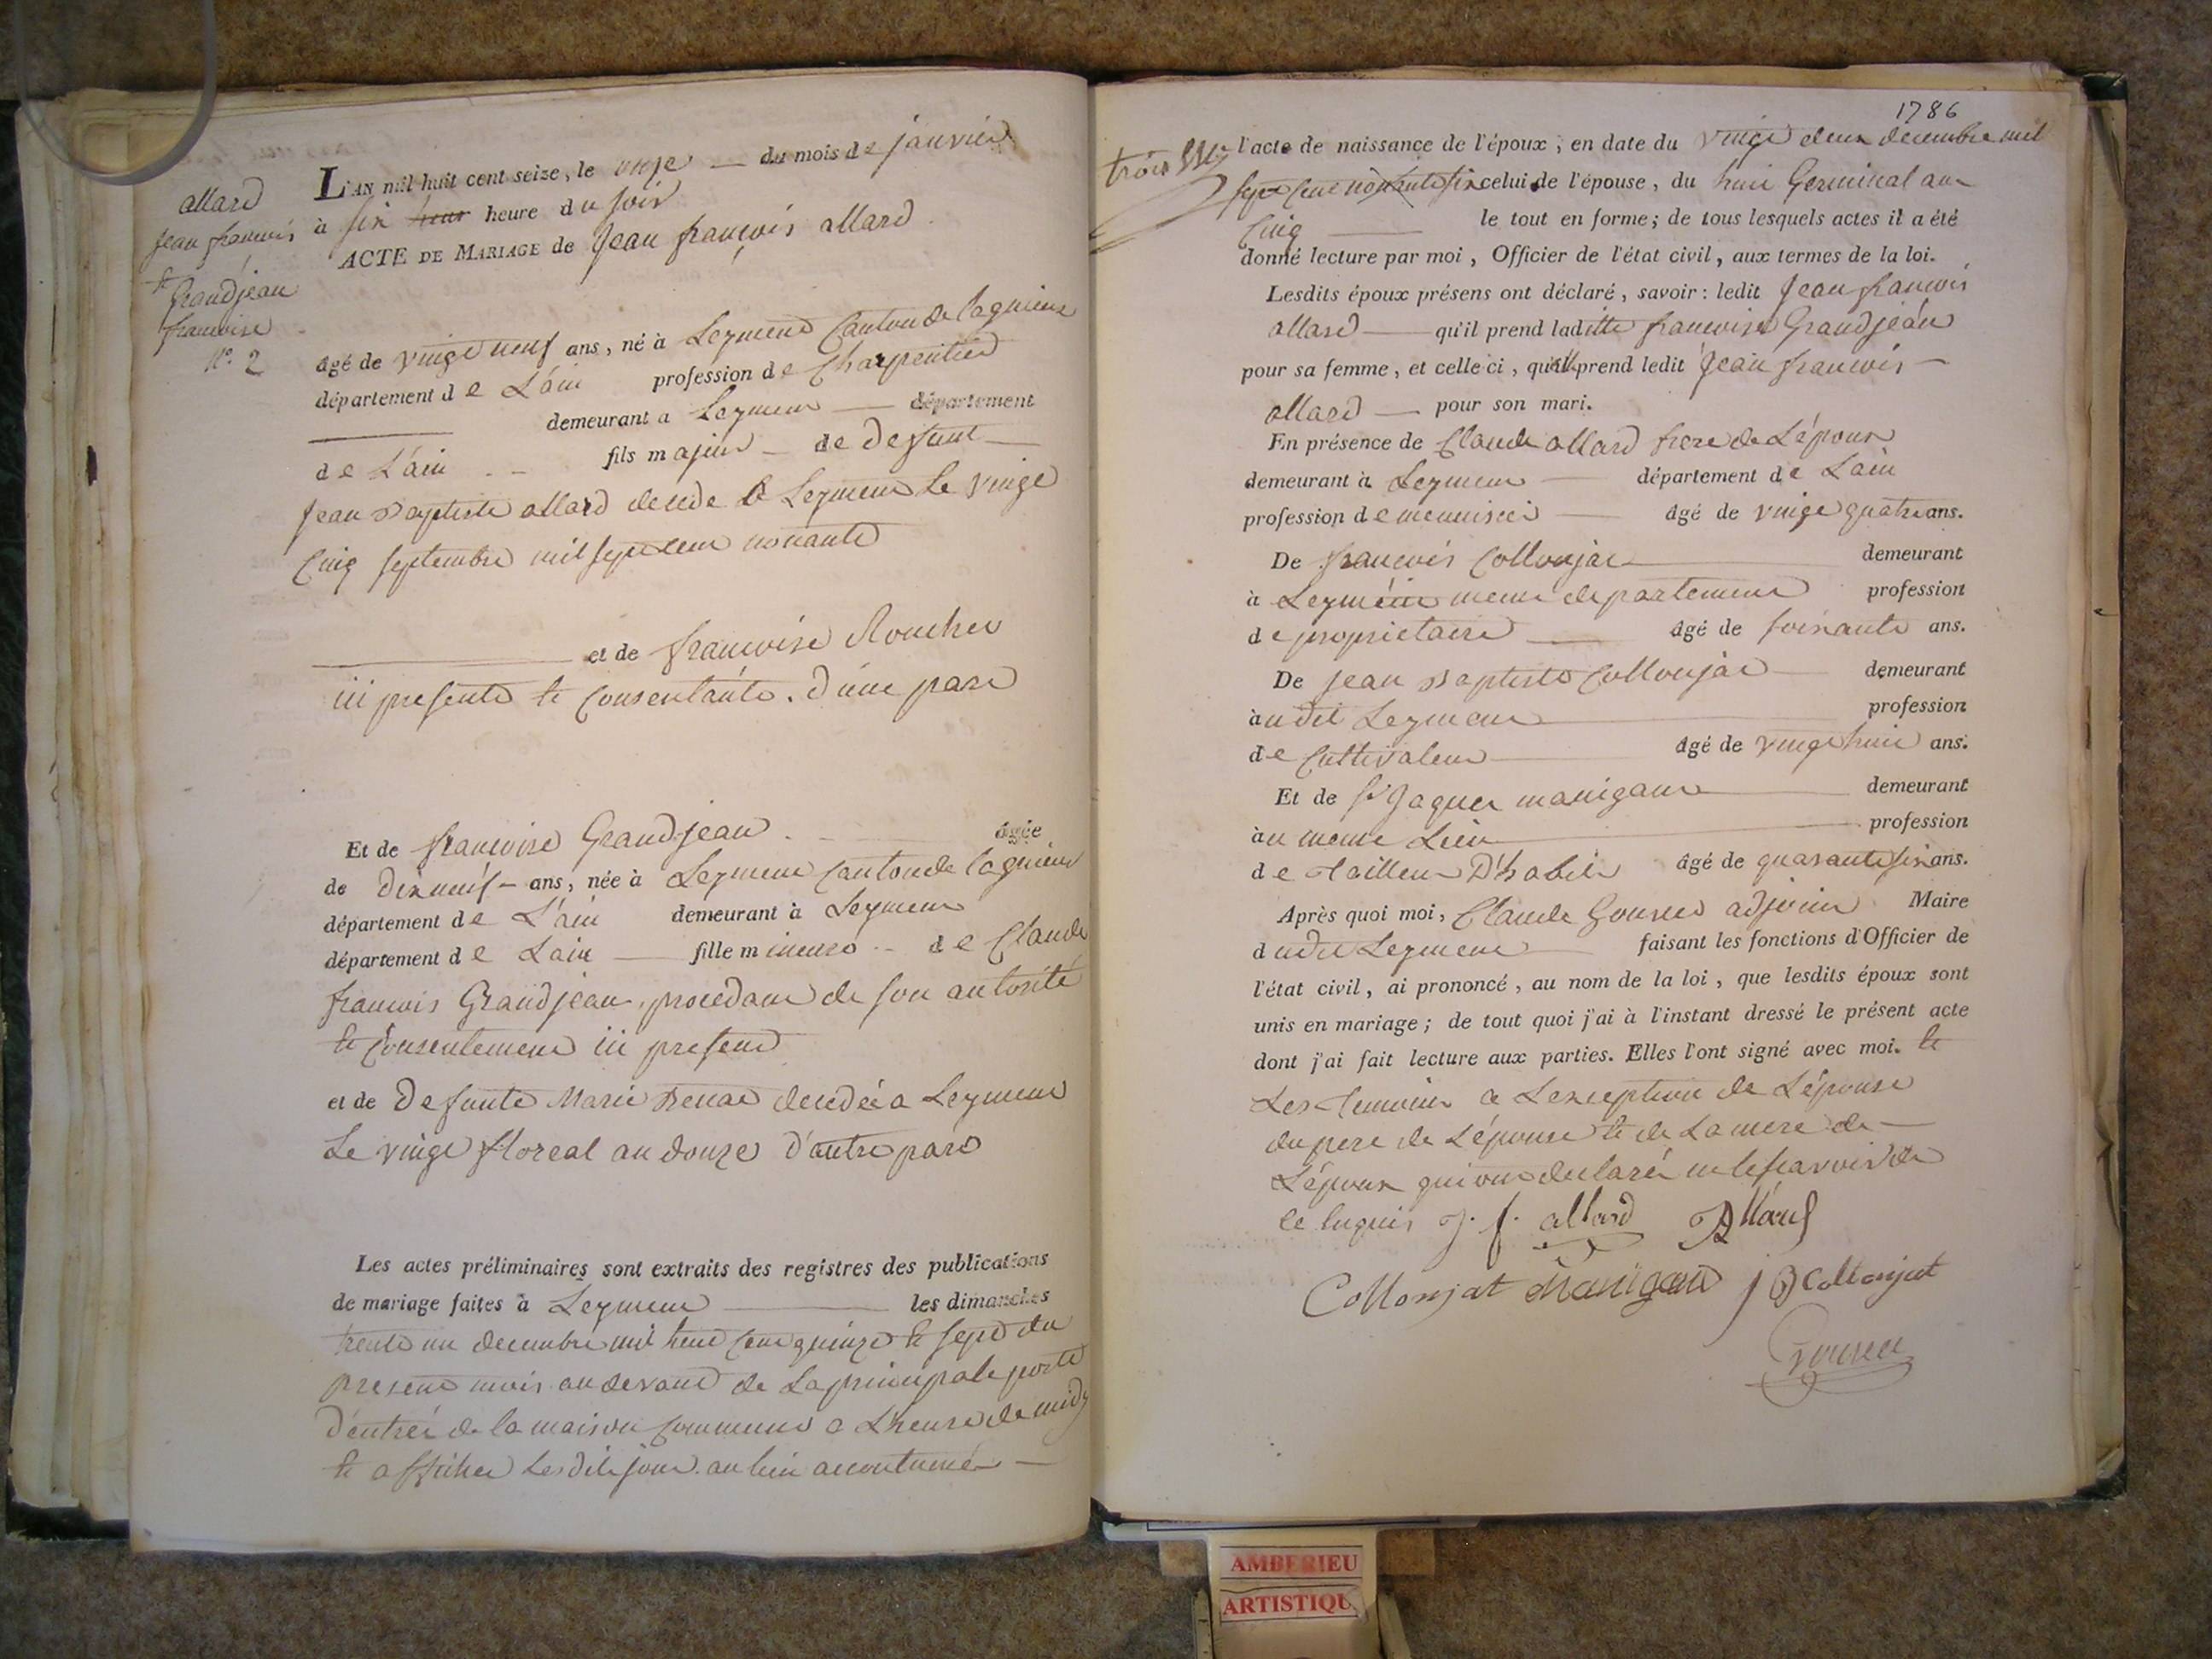 allard
jean francois
et
Grandjean
francoise
N.º 2
L'AN mil huit cent seize, le onze — du mois de janvier
à six heure du soir
ACTE DE MARIAGE de Jean françois allard
âgé de vingt neuf ans, né à Leyment Canton de lagnieux
département de L'ain profession de Charpentier
demeurant a Leyment — département
de L'ain fils majeur — de defunt —
Jean Baptiste allard decede a Leyment Le vingt
Cinq septembre mil sept cent nonante
et de francoise Roucher
ici presente et Consentante. d'une part
Et de francoise Grandjean âgée
de dix neuf — ans, née à Leyment Canton de lagnieux
département de L'ain demeurant à Leyment
département de Lain — fille mineure — de Claude
francois Grandjean, procedant de son autorité
et Consentement ici present
et de defunte Marie decedée a Leyment
Le vingt floreal an douze d'autre part
Les actes préliminaires sont extraits des registres des publications
de mariage faites à Leyment — les dimanches
trente un decembre mil huit cent quinze et sept du
present mois au devant de La principale porte
d'entrée de la maison Commune a L'heure de midy
et affiches Lesdits jours au lieu accoutumé —
1786
trois
l'acte de naissance de l'époux, en date du vingt deux decembre mil
sept cent nonante six celui de l'épouse, du huit Germinal an
Cinq — le tout en forme; de tous lesquels actes il a été
donné lecture par moi, Officier de l'état civil, aux termes de la loi.
Lesdits époux présens ont déclaré, savoir: ledit Jean francois
allard — qu'il prend laditte francoise Grandjean
pour sa femme, et celle ci, qu'elle prend ledit Jean francois —
allard — pour son mari.
En présence de Claude allard frere de L'époux
demeurant à Leyment — département de Lain
profession de menuisier — âgé de vingt quatre ans.
De francois Collonjat — demeurant
à Leyment meme departement profession
de proprietaire — âgé de soixante ans.
De jean Baptiste Collonjat — demeurant
à udit Leyment — profession
de Cultivateur — âgé de vingt huit ans.
Et de Sr Jaques manigand — demeurant
à u meme Lieu — profession
de tailleur D'habits âgé de quarante six ans.
Après quoi moi, Claude adjoint Maire
dudit Leyment — faisant les fonctions d'Officier de
l'état civil, ai prononcé, au nom de la loi, que lesdits époux sont
unis en mariage; de tout quoi j'ai à l'instant dressé le présent acte
dont j'ai fait lecture aux parties. Elles l'ont signé avec moi. et
Les temoins a L'exception de L'épouse
du pere de L'épouse et de La mere de —
L'époux qui ont declaré ne le scavoir de
ce enquis J. f. allard
Collonjat manigand J B Collonjat
AMBERIEU
ARTISTIQU